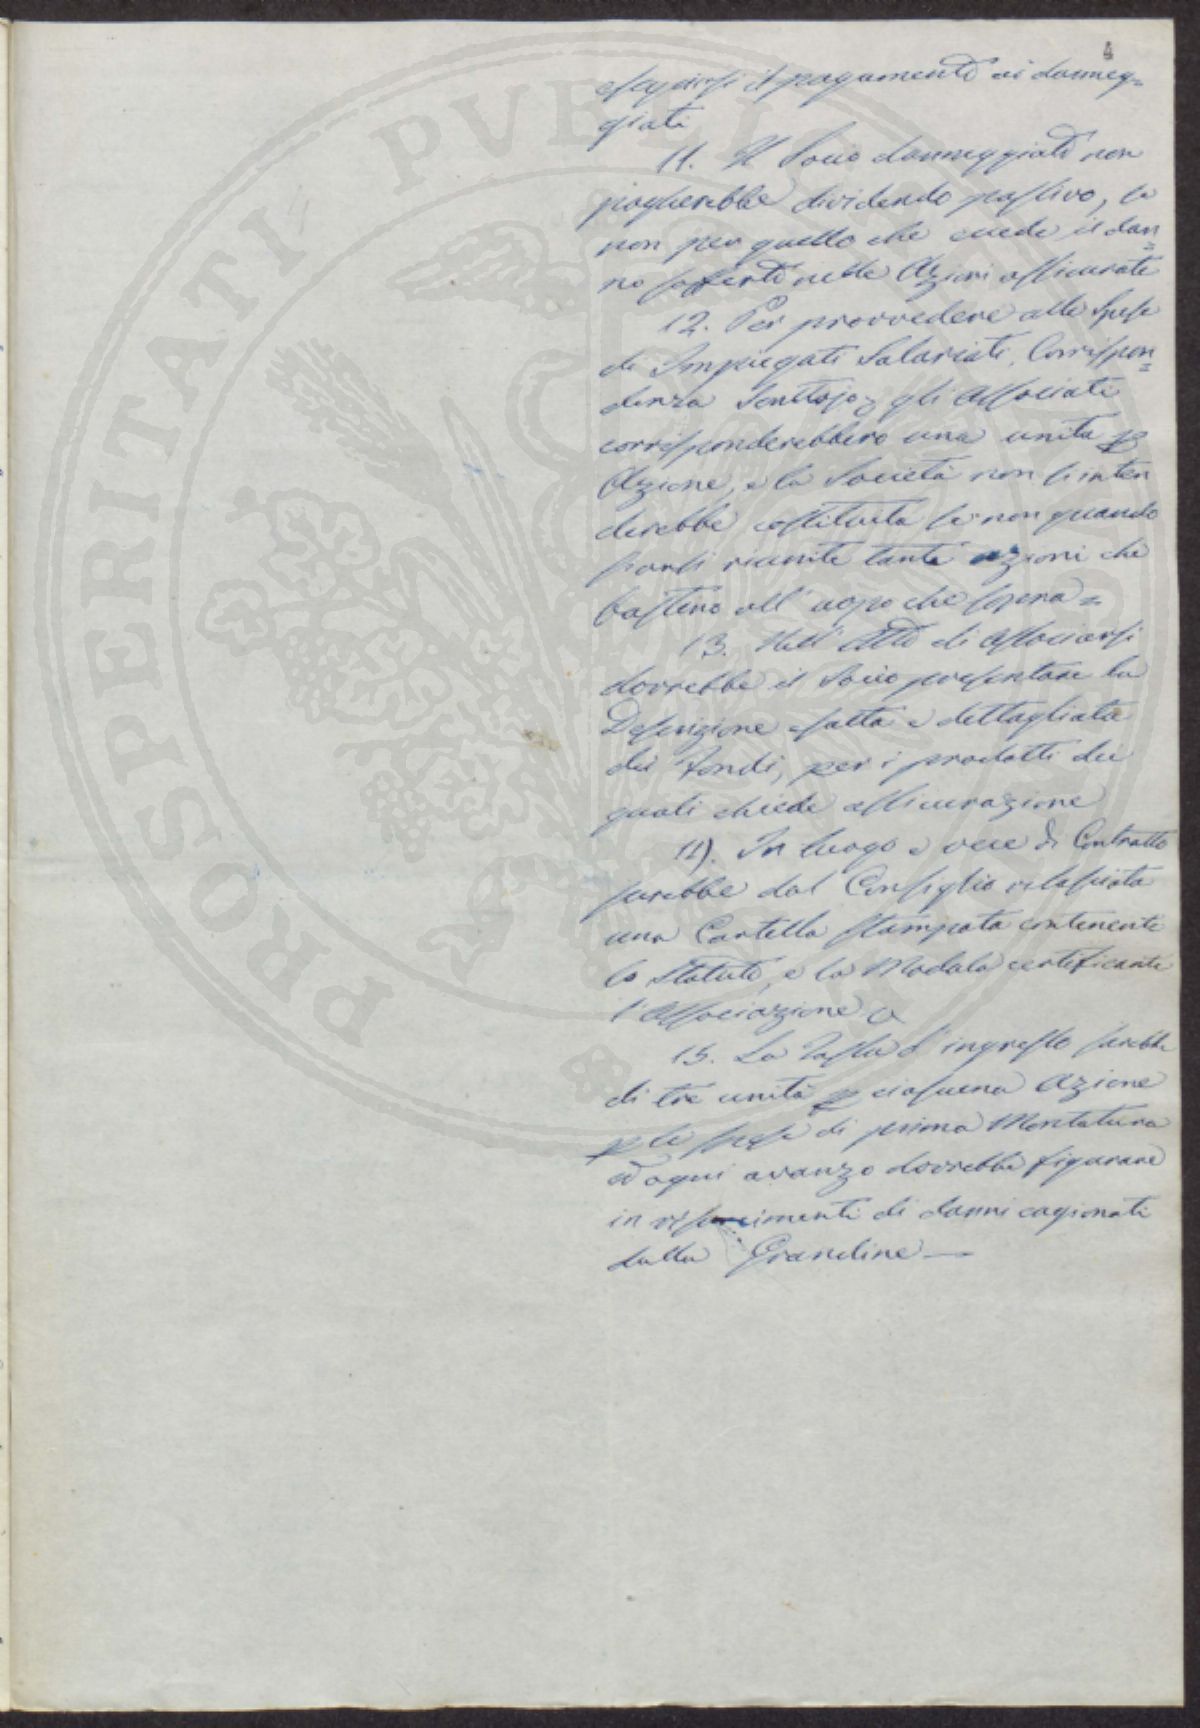 4
eseguirsi il pagamento ai danneg=
giati
11. Il Socio danneggiato non
pagherebbe dividendo passivo, se
non per quello che eccede il dan=
no sofferto nelle Azioni assicurate
12. Per provvedere alle Spese
di Impiegati Salariati, Corrispon=
denza gli Associati
corrisponderebbero una unità p
Azione, e la Società non s'inten
derebbe costituita se non quando
siansi riunite tante azioni che
bastino all'uopo che sopra =
13. Nell'Atto di Associarsi
dovrebbe il Socio presentare la
Descrizione esatta e dettagliata
dei Fondi, per i prodotti dei
quali chiede assicurazione
14). In luogo e vece di Contratto
sarebbe dal Consiglio rilasciata
una Cartella stampata contenente
lo Statuto, e la Modula certificante
l'Associazione
15. La Tassa d'ingresso sarebbe
di tre unità p ciascuna Azione
p le spese di prima Montatura
ed ogni avanzo dovrebbe figurare
in risarcimenti di danni cagionati
dalla Grandine —
PROSPERITATI PVBLICAE